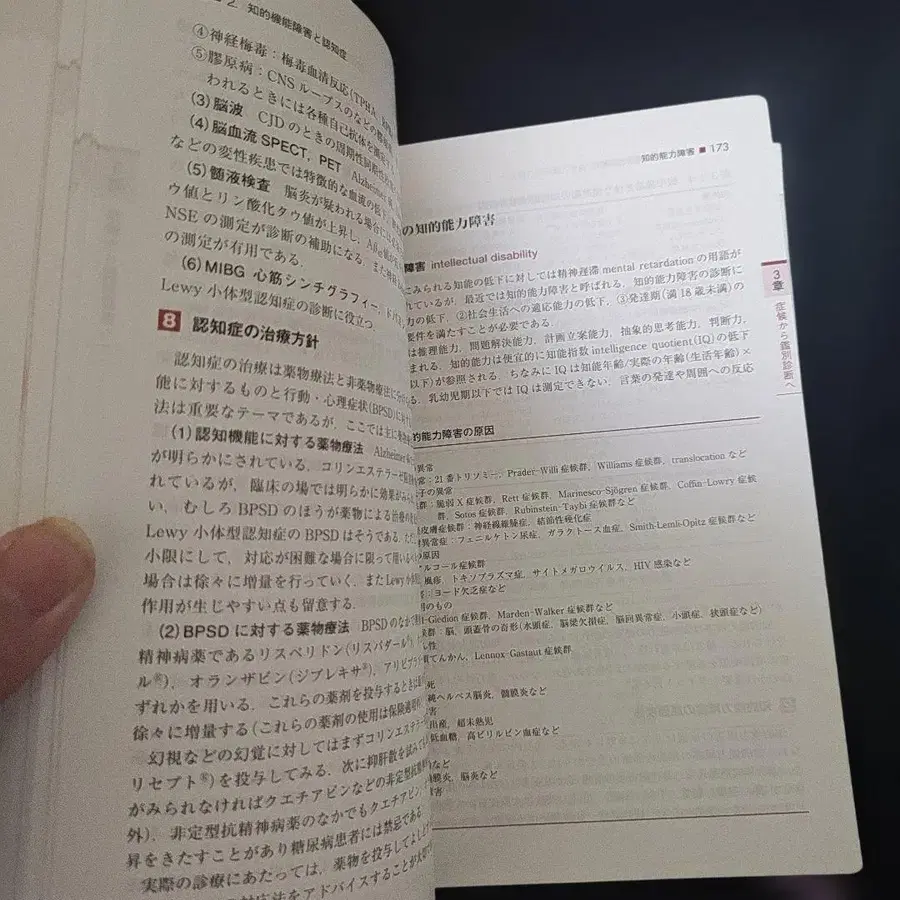 2. 知的機能障害と認知症
④神経梅毒：梅毒血清反応(TPHA,
⑤膠原病：CNS ループスのなどの
われるときには各種自己抗体を
(3) 脳波 CJD のときの周期性同期性
(4) 脳血流 SPECT, PET Alzheimer
などの変性疾患では特徴的な血流の低下
(5) 髄液検査 脳炎が疑われる場合には
ウ値とリン酸化タウ値が上昇し, Aβ
NSE の測定が診断の補助になる. また
の測定が有用である.
(6) MIBG 心筋シンチグラフィー,
Lewy 小体型認知症の診断に役立つ.
8 認知症の治療方針
認知症の治療は薬物療法と非薬物療法に
能に対するものと行動・心理症状(BPSD)に
法は重要なテーマであるが, ここでは主に
(1) 認知機能に対する薬物療法 Alzheimer
が明らかにされている. コリンエステラーゼ
れているが, 臨床の場では明らかに効果が
い, むしろ BPSD のほうが薬物による治療の
Lewy 小体型認知症の BPSD はそうである. ただ
小限にして, 対応が困難な場合に限って用いる
場合は徐々に増量を行っていく. また Lewy 小体
作用が生じやすい点も留意する.
(2) BPSD に対する薬物療法 BPSD のなかで
精神病薬であるリスペリドン(リスパダール®),
ル®), オランザピン(ジプレキサ®), アリピプラ
ずれかを用いる. これらの薬剤を投与するときは
徐々に増量する(これらの薬剤の使用は保険適用
幻視などの幻覚に対してはまずコリンエステラー
リセプト®)を投与してみる. 次に抑肝散を試みて
がみられなければクエチアピンなどの非定型抗
外). 非定型抗精神病薬のなかでもクエチアピン
昇をきたすことがあり糖尿病患者には禁忌である
実際の診療にあたっては, 薬物を投与して
対応法をアドバイスすることが大切
知的能力障害 ■ 173
の知的能力障害
障害 intellectual disability
にみられる知能の低下に対しては精神遅滞 mental retardation の用語が
れているが, 最近では知的能力障害と呼ばれる. 知的能力障害の診断に
力の低下, ②社会生活への適応能力の低下, ③発達期(満 18 歳未満)の
要件を満たすことが必要である.
は推理能力, 問題解決能力, 計画立案能力, 抽象的思考能力, 判断力,
まれる. 知的能力は便宜的に知能指数 intelligence quotient(IQ)の低下
以下)が参照される. ちなみに IQ は知能年齢/実際の年齢(生活年齢)×
る. 乳幼児期以下では IQ は測定できない. 言葉の発達や周囲への反応
的能力障害の原因
異常
常：21 番トリソミー, Prader-Willi 症候群, Williams 症候群, translocation など
子の異常
群：脆弱 X 症候群, Rett 症候群, Marinesco-Sjögren 症候群, Coffin-Lowry 症候
群, Sotos 症候群, Rubinstein-Taybi 症候群など
皮膚症候群：神経線維腫症, 結節性硬化症
異常症：フェニルケトン尿症, ガラクトース血症, Smith-Lemli-Opitz 症候群など
の原因
アルコール症候群
風疹, トキソプラズマ症, サイトメガロウイルス, HIV 感染など
：ヨード欠乏症など
明のもの
t-Giedion 症候群, Marden-Walker 症候群など
群：脳, 頭蓋骨の奇形(水頭症, 脳梁欠損症, 脳回異常症, 小頭症, 狭頭症など)
ん性
てんかん, Lennox-Gastaut 症候群
死
純ヘルペス脳炎, 髄膜炎など
害
出産, 超未熟児
低血糖, 高ビリルビン血症など
など
膜炎, 脳炎など
障害
3
章
症候から鑑別診断へ